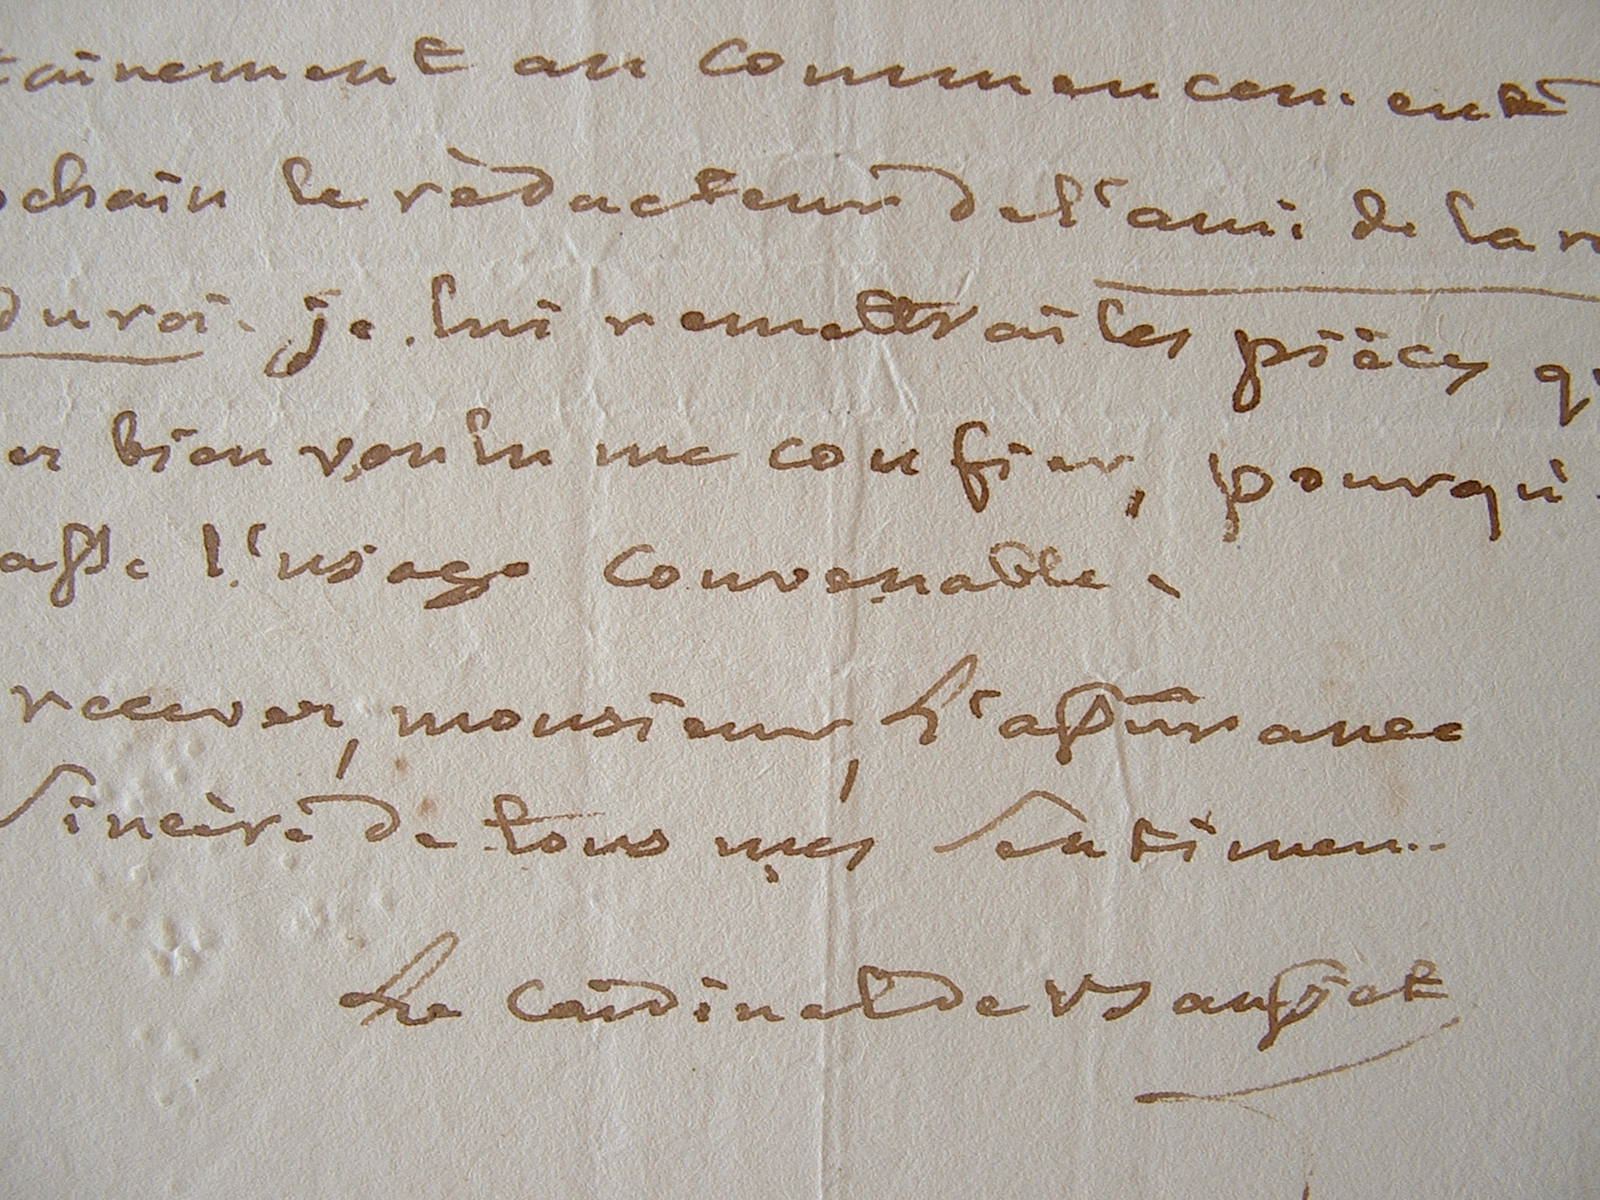 tainement au commencement
ochain le rèdacteur de l'ami de la r
du roi. je lui remettrai les pièces q
ez bien voulu me confier, pourqu'
asse l'usage convenable.
recever, monsieur, l'assurance
sincère de tous mes sentimen..
Le cardinal de Bausset